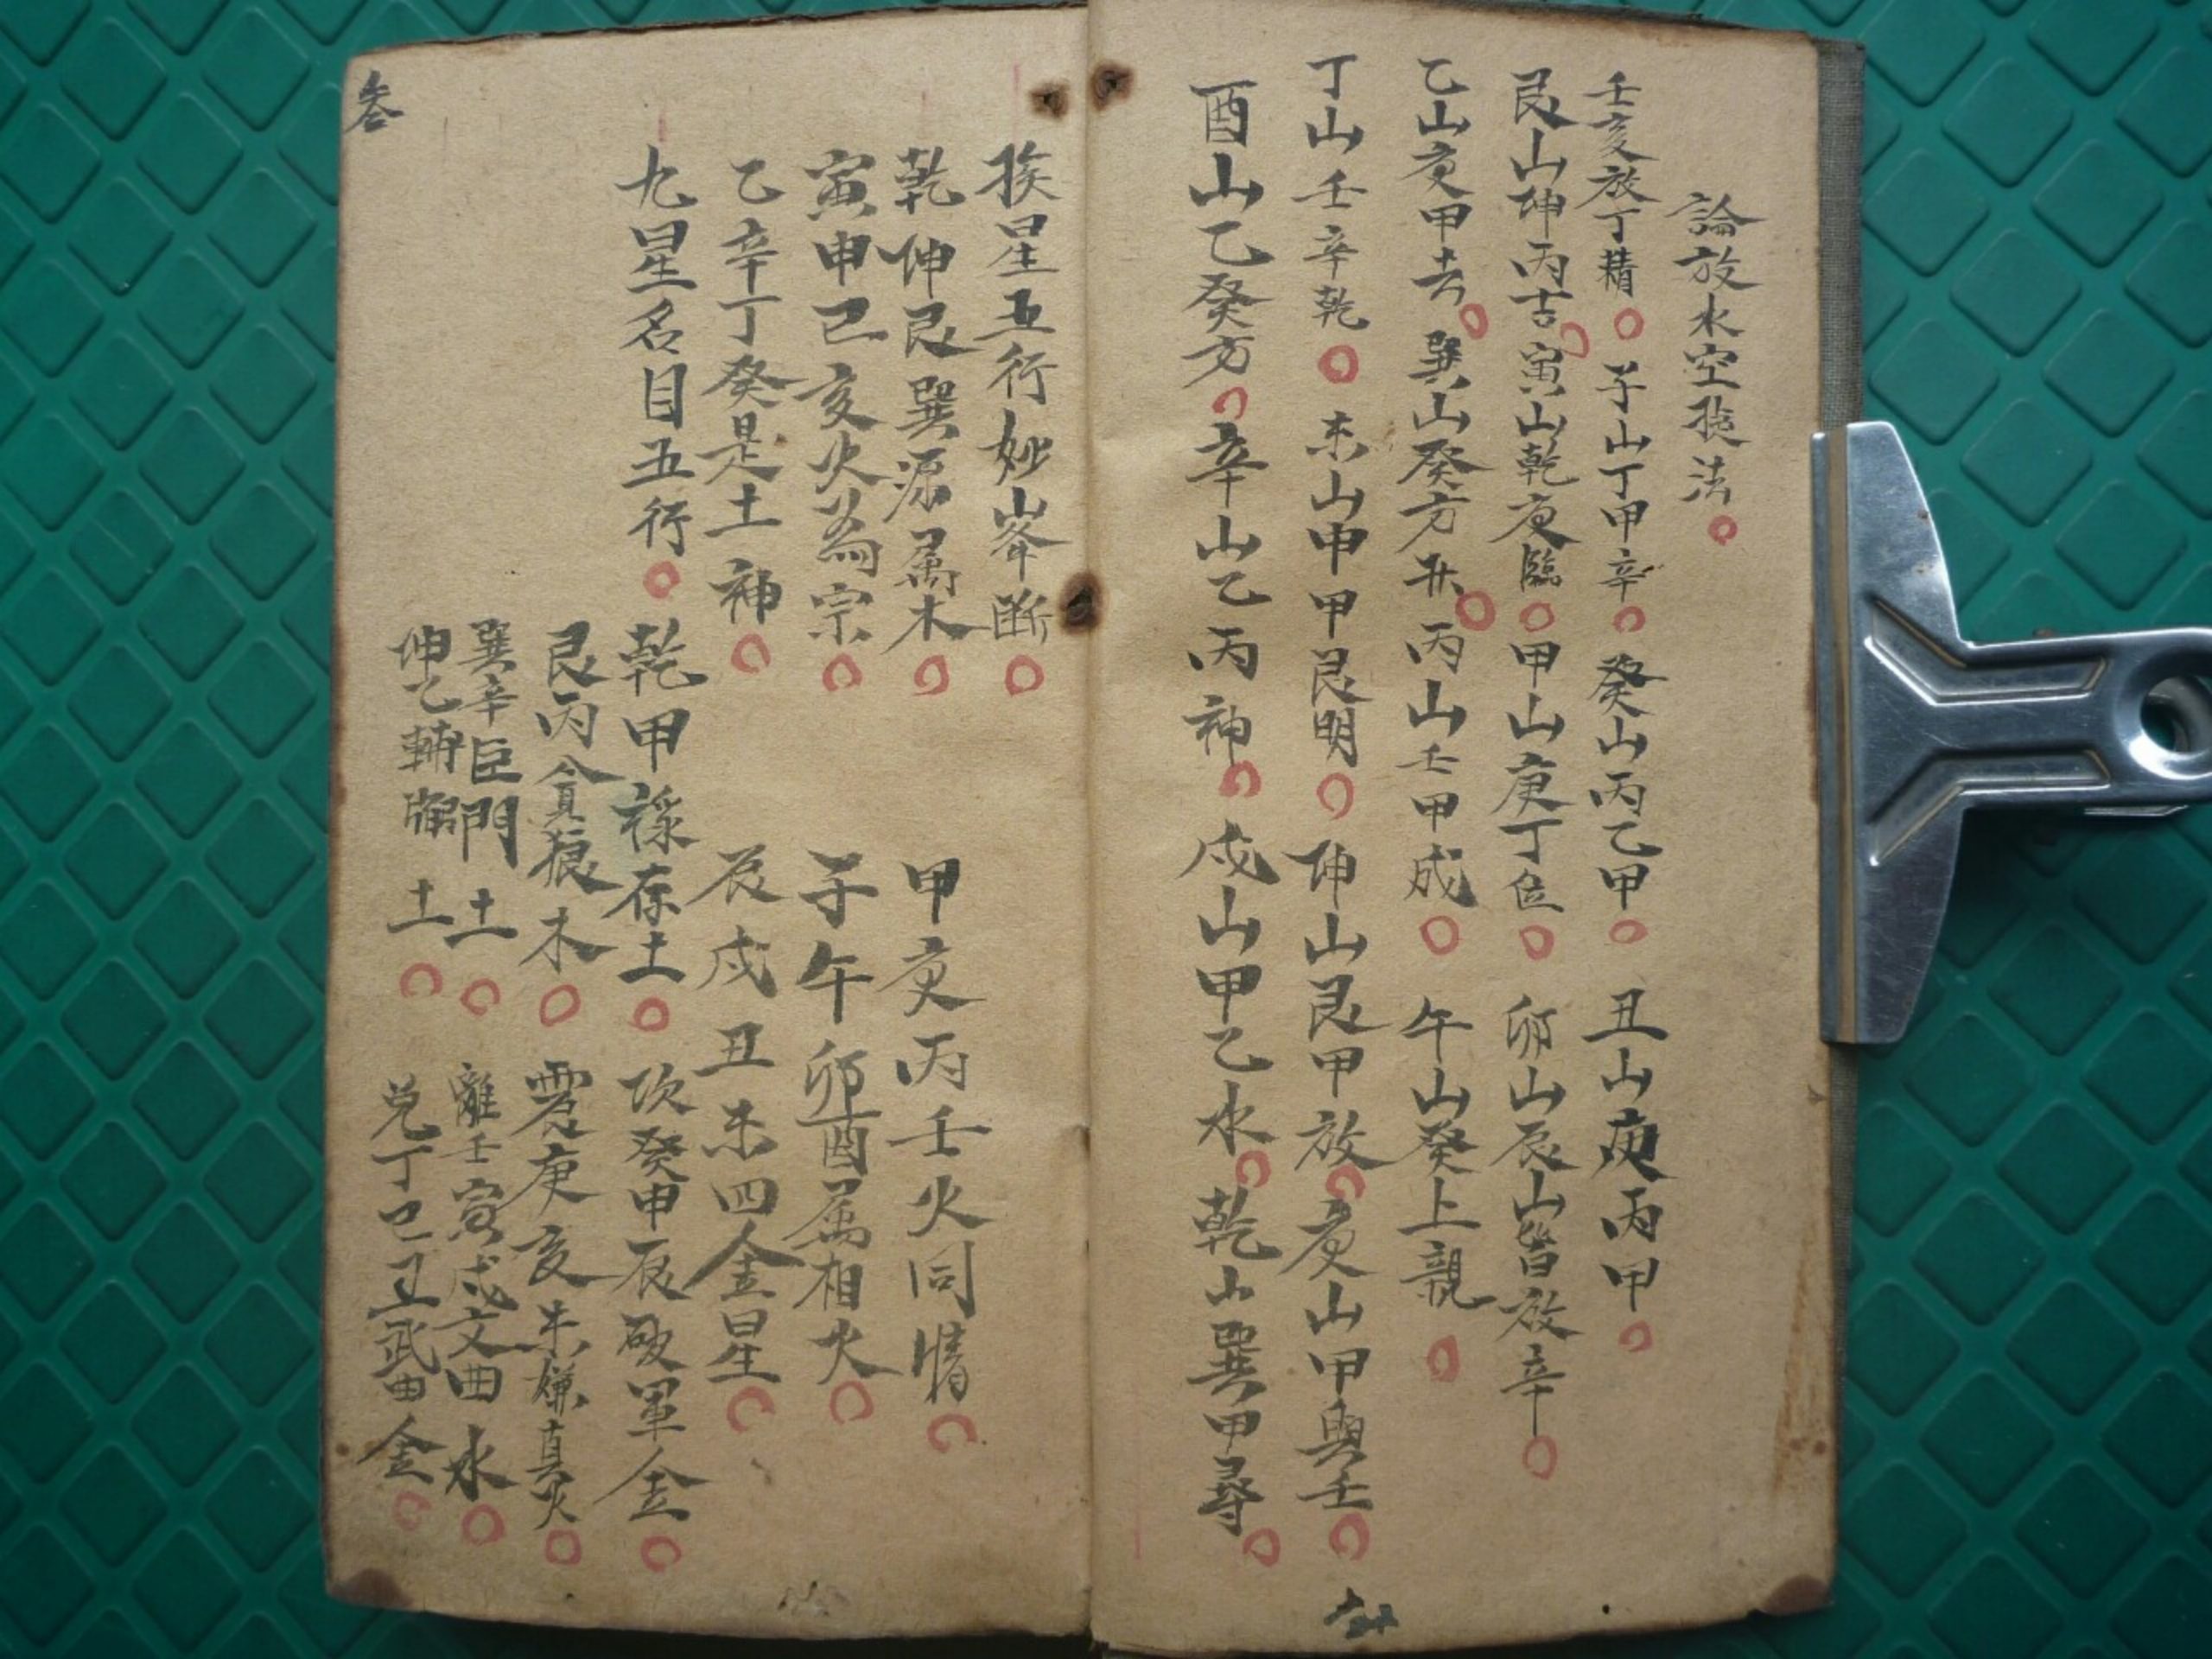 論放水空 法
壬亥放丁精 子山丁甲辛 癸山丙乙甲 丑山庚丙甲
艮山坤丙吉 寅山乾庚臨 甲山庚丁位 卯山辰山皆放辛
乙山庚甲去 巽山癸方 丙山壬甲成 午山癸上親
丁山壬辛乾 未山申甲艮明 坤山艮甲放 庚山甲與壬
酉山乙癸方 辛山乙丙神 戍山甲乙水 乾山巽甲尋
挨星五行妙 断
乾坤艮巽源属木 甲庚丙壬火同情
寅申巳亥火為宗 子午卯酉属相火
乙辛丁癸是土神 辰戍丑未四金星
九星名目五行 乾甲祿存土 坎癸申辰破軍金
艮丙貪狼木 震庚亥未 真火
巽辛巨門土 離壬寅戍文曲水
坤乙輔弼土 兌丁巳丑武曲金
叁